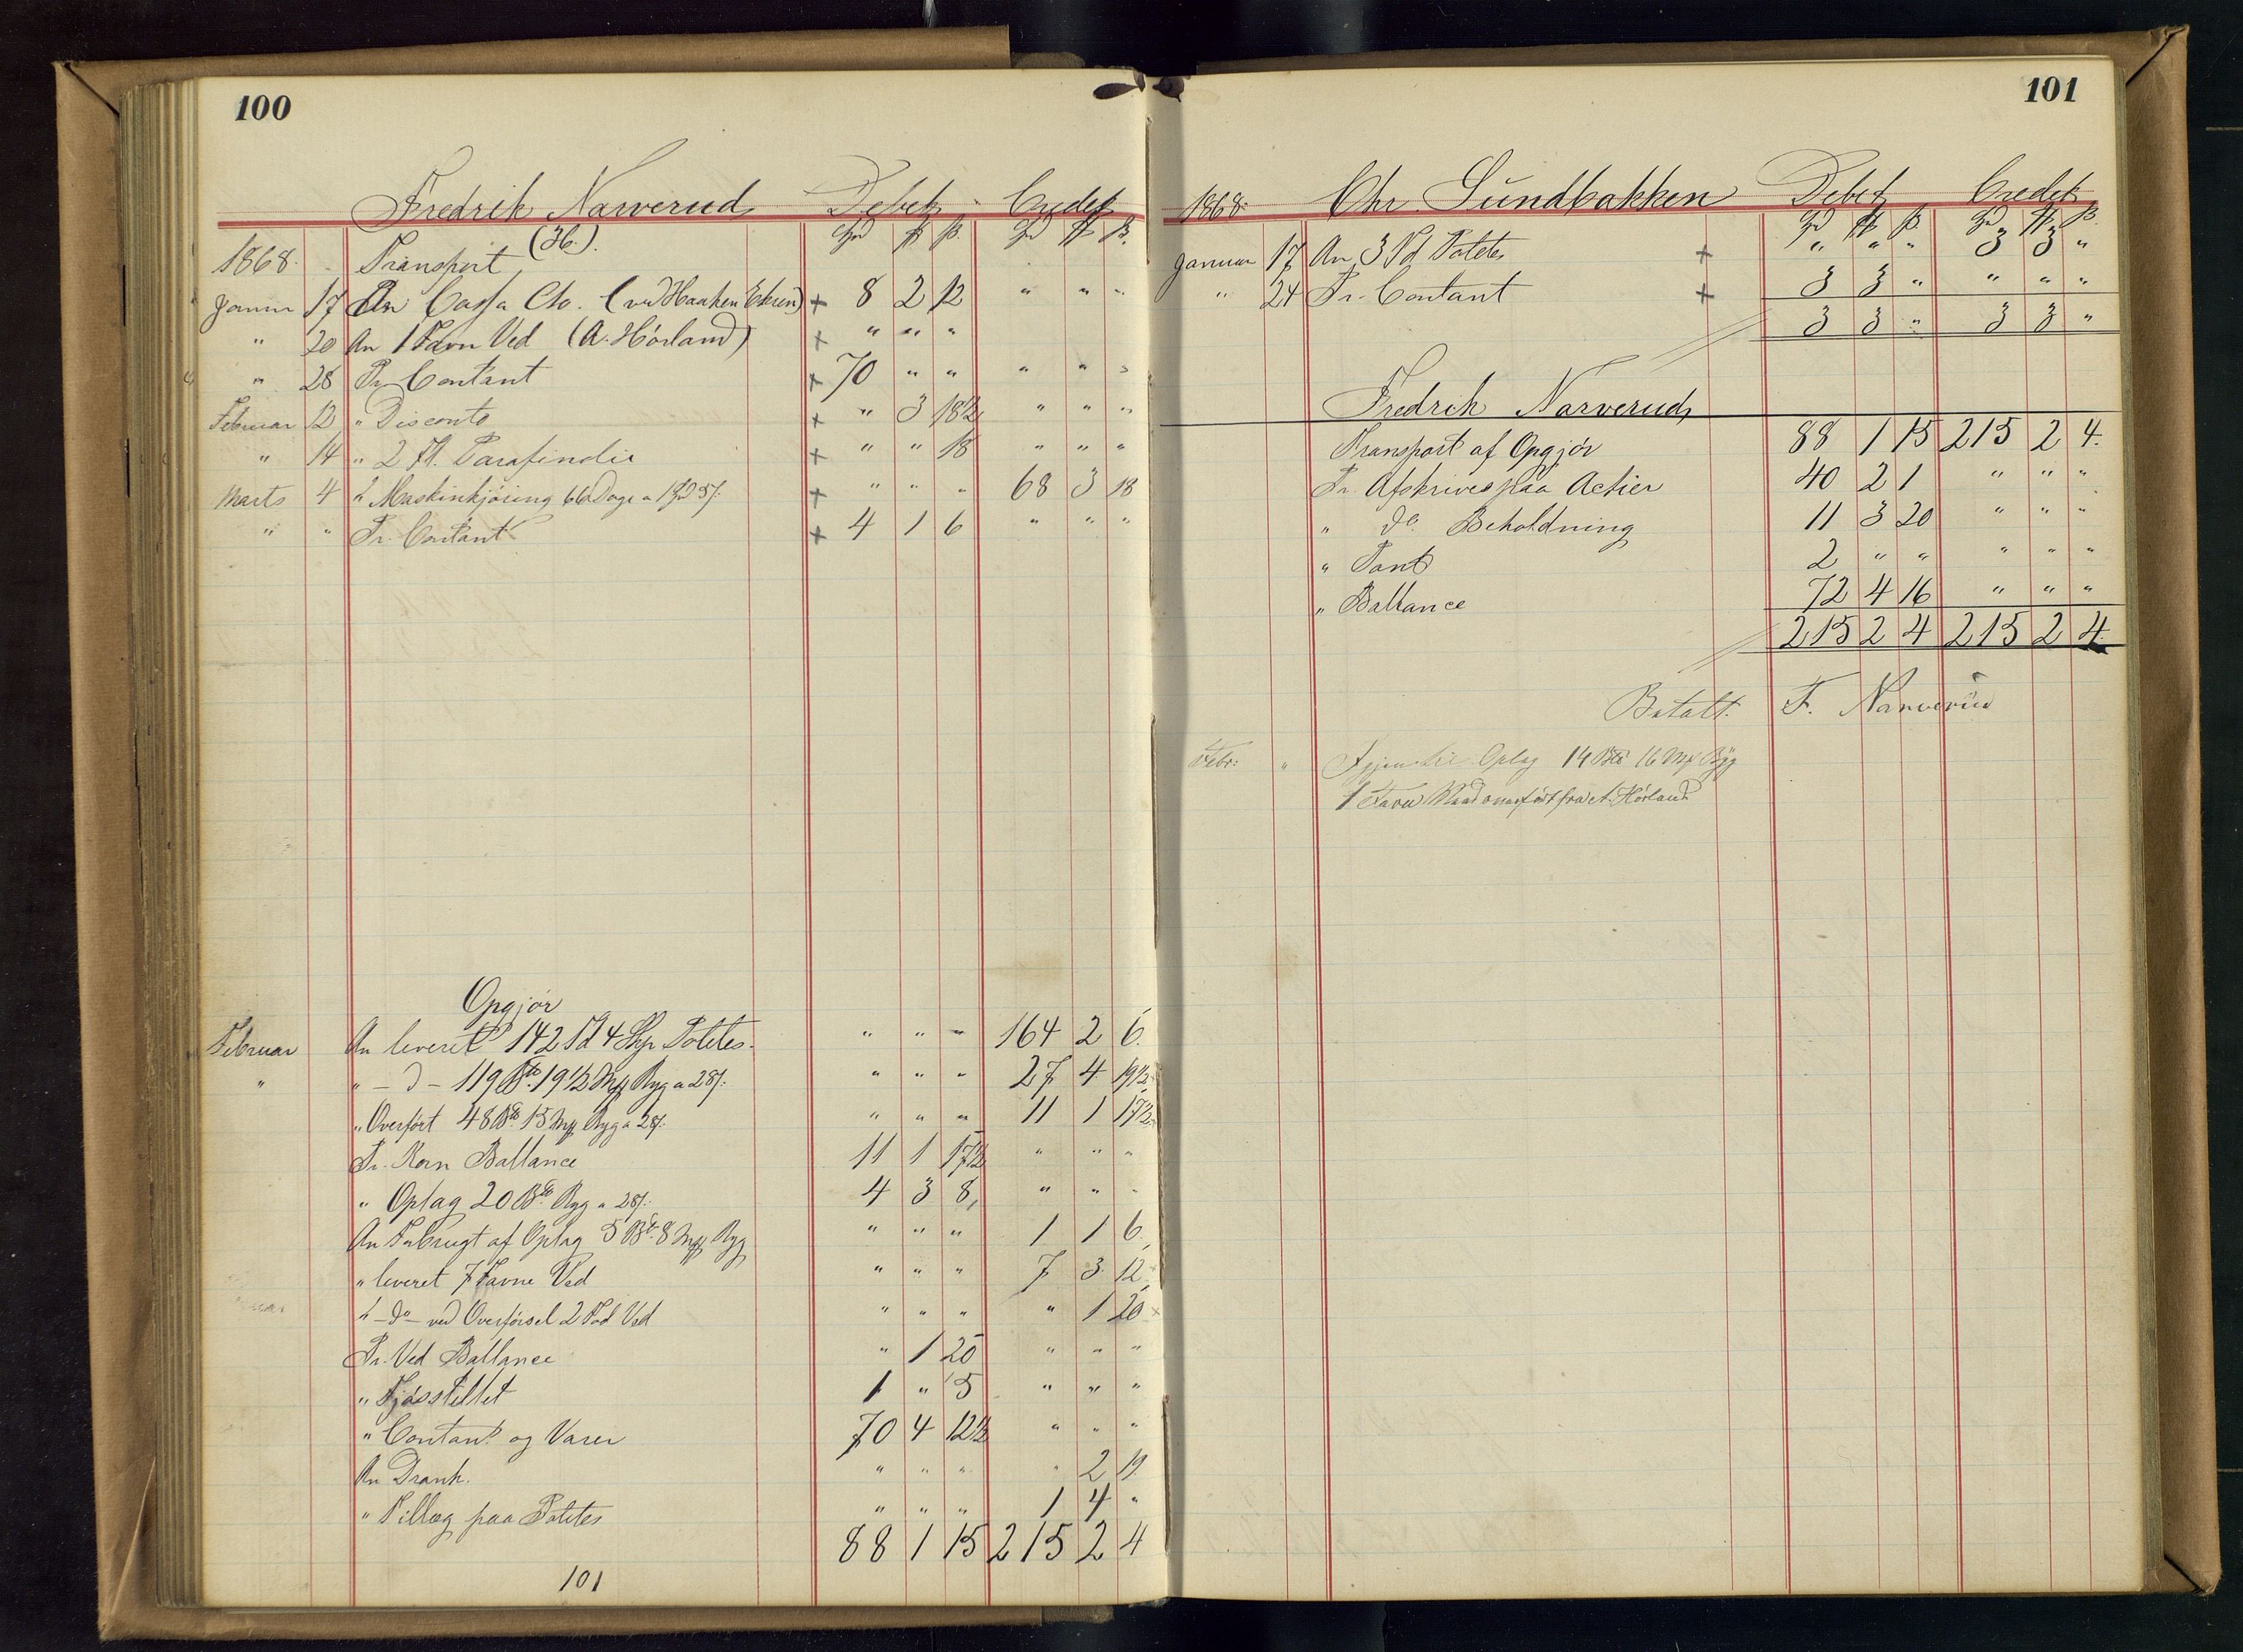 100
Fredrik Narverud Debet Credet
(H.) Spd # ß. Spd # ß.
1868. Transport
Januar 17 An Cassa Cto. (ved Haaken Ekren) + 8 2 12 " " "
" 20 An 1 Favn Ved (A. Hörland) + " " "
" 28 Pr. Contant + 70 " " " " "
Februar 12 " Disconto + " 3 18½ " " "
" 14 " 2 Fl. Parafinolie + " " 18 " " "
Marts 4 " Maskinkjöring 66 Dage a 1 Spd 5/: + " " " 68 3 18
" " Pr. Contant + 4 1 6 " " "
Opgjör
Februar An leveret 142 Td 4 Skp Potetes. " " " 164 2 6.
" " - d - 119 19½ Mk Byg a 28/: " " " 27 4 19½
" Overfört 48 15 Mk Byg a 28/. " " " 11 1 17½
Pr. Korn Ballance 11 1 17½ " " "
" Oplag 20 Byg a 28/: 4 3 8, " " "
An Forbrugt af Oplag 5 8 Mk Byg " " " 1 1 6.
" leveret 7 Favne Ved " " " 7 3 12
" - do - ved Overförsel 2 Fod Ved " " " " 1 20
Pr. Ved Ballance " 1 20 " " "
" Fjösstellet 1 " 5 " " "
" Contant og Varer 70 4 12½ " " "
An Drank. " " " " 2 19
" Tillæg paa Potetes " " " 1 4 "
88 1 15 215 2 4
101
101
1868. Chr. Sundbakken Debet Credet
Spd # ß. Spd # ß.
Januar 17 An 3 Td Potetes + " " " 3 3 "
" 24 Pr. Contant + 3 3 " " " "
3 3 " 3 3 "
Fredrik Narverud
Transport af Opgjör 88 1 15 215 2 4.
Pr. Afskrives paa Actier 40 2 1 " " "
" do. Beholdning 11 3 20 " " "
" Pant 2 " " " " "
" Ballance 72 4 16 " " "
215 2 4 215 2 4.
Betalt. F. Narverud
Febr: " Oplag 14 16 Mk Byg
1 Favn fra A. Hörland